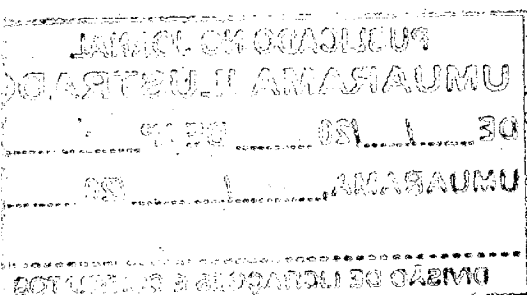 PUBLICADO NO JORNAL
UMUARAMA ILUSTRADO
DE / /20 DE Nº
UMUARAMA, / 20
DIVISÃO DE LICITAÇÕES E